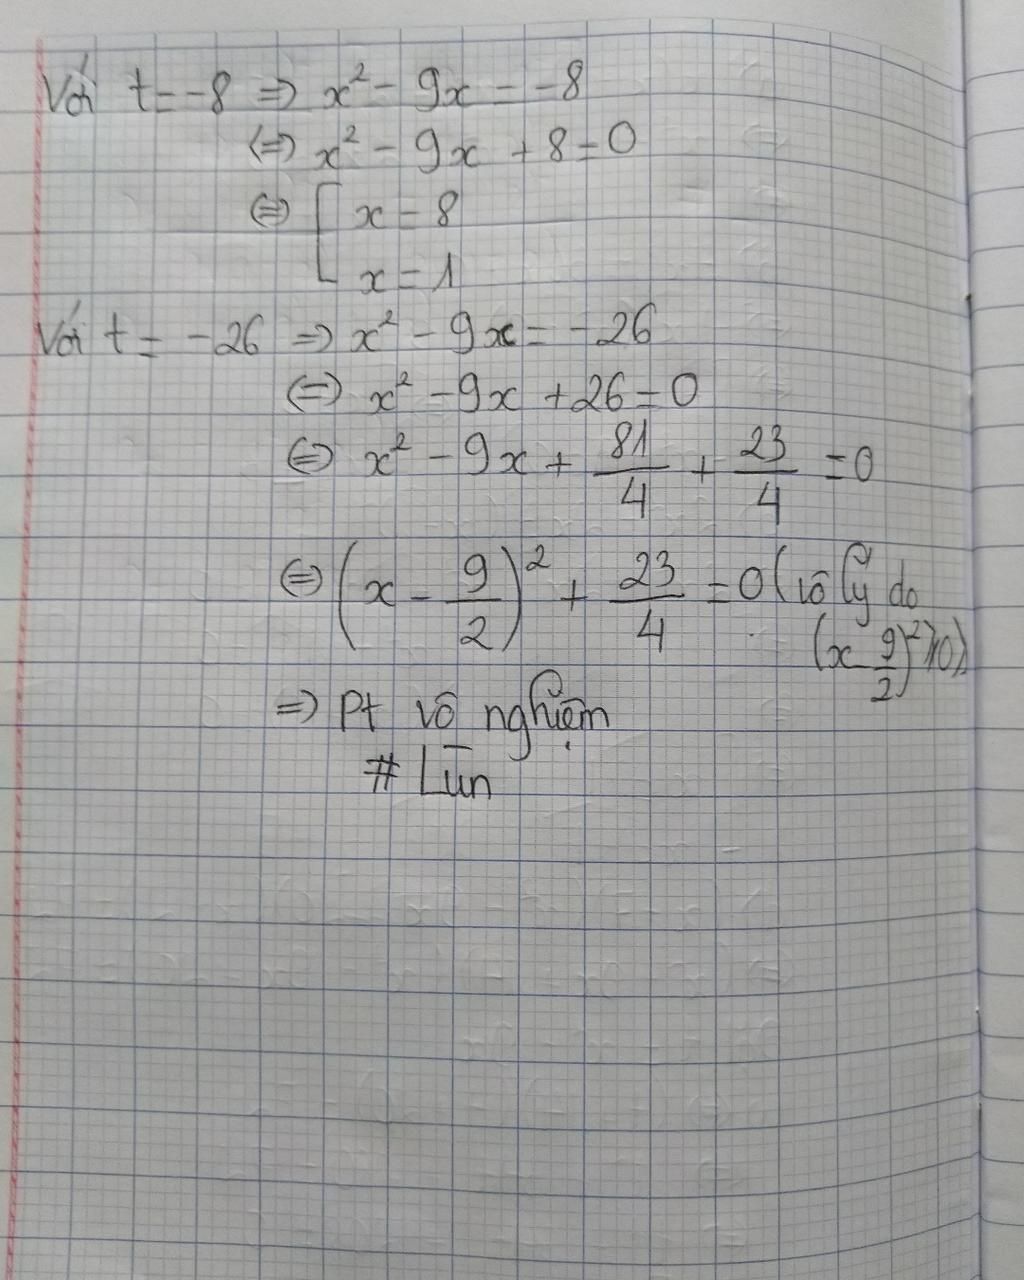 Với t = -8 => x² - 9x = -8
<=> x² - 9x + 8 = 0
<=> [ x = 8
x = 1
Với t = -26 => x² - 9x = -26
<=> x² - 9x + 26 = 0
<=> x² - 9x + 81/4 + 23/4 = 0
<=> (x - 9/2)² + 23/4 = 0 (vô lý do
(x - 9/2)² ≥ 0)
=> Pt vô nghiệm
# Lùn